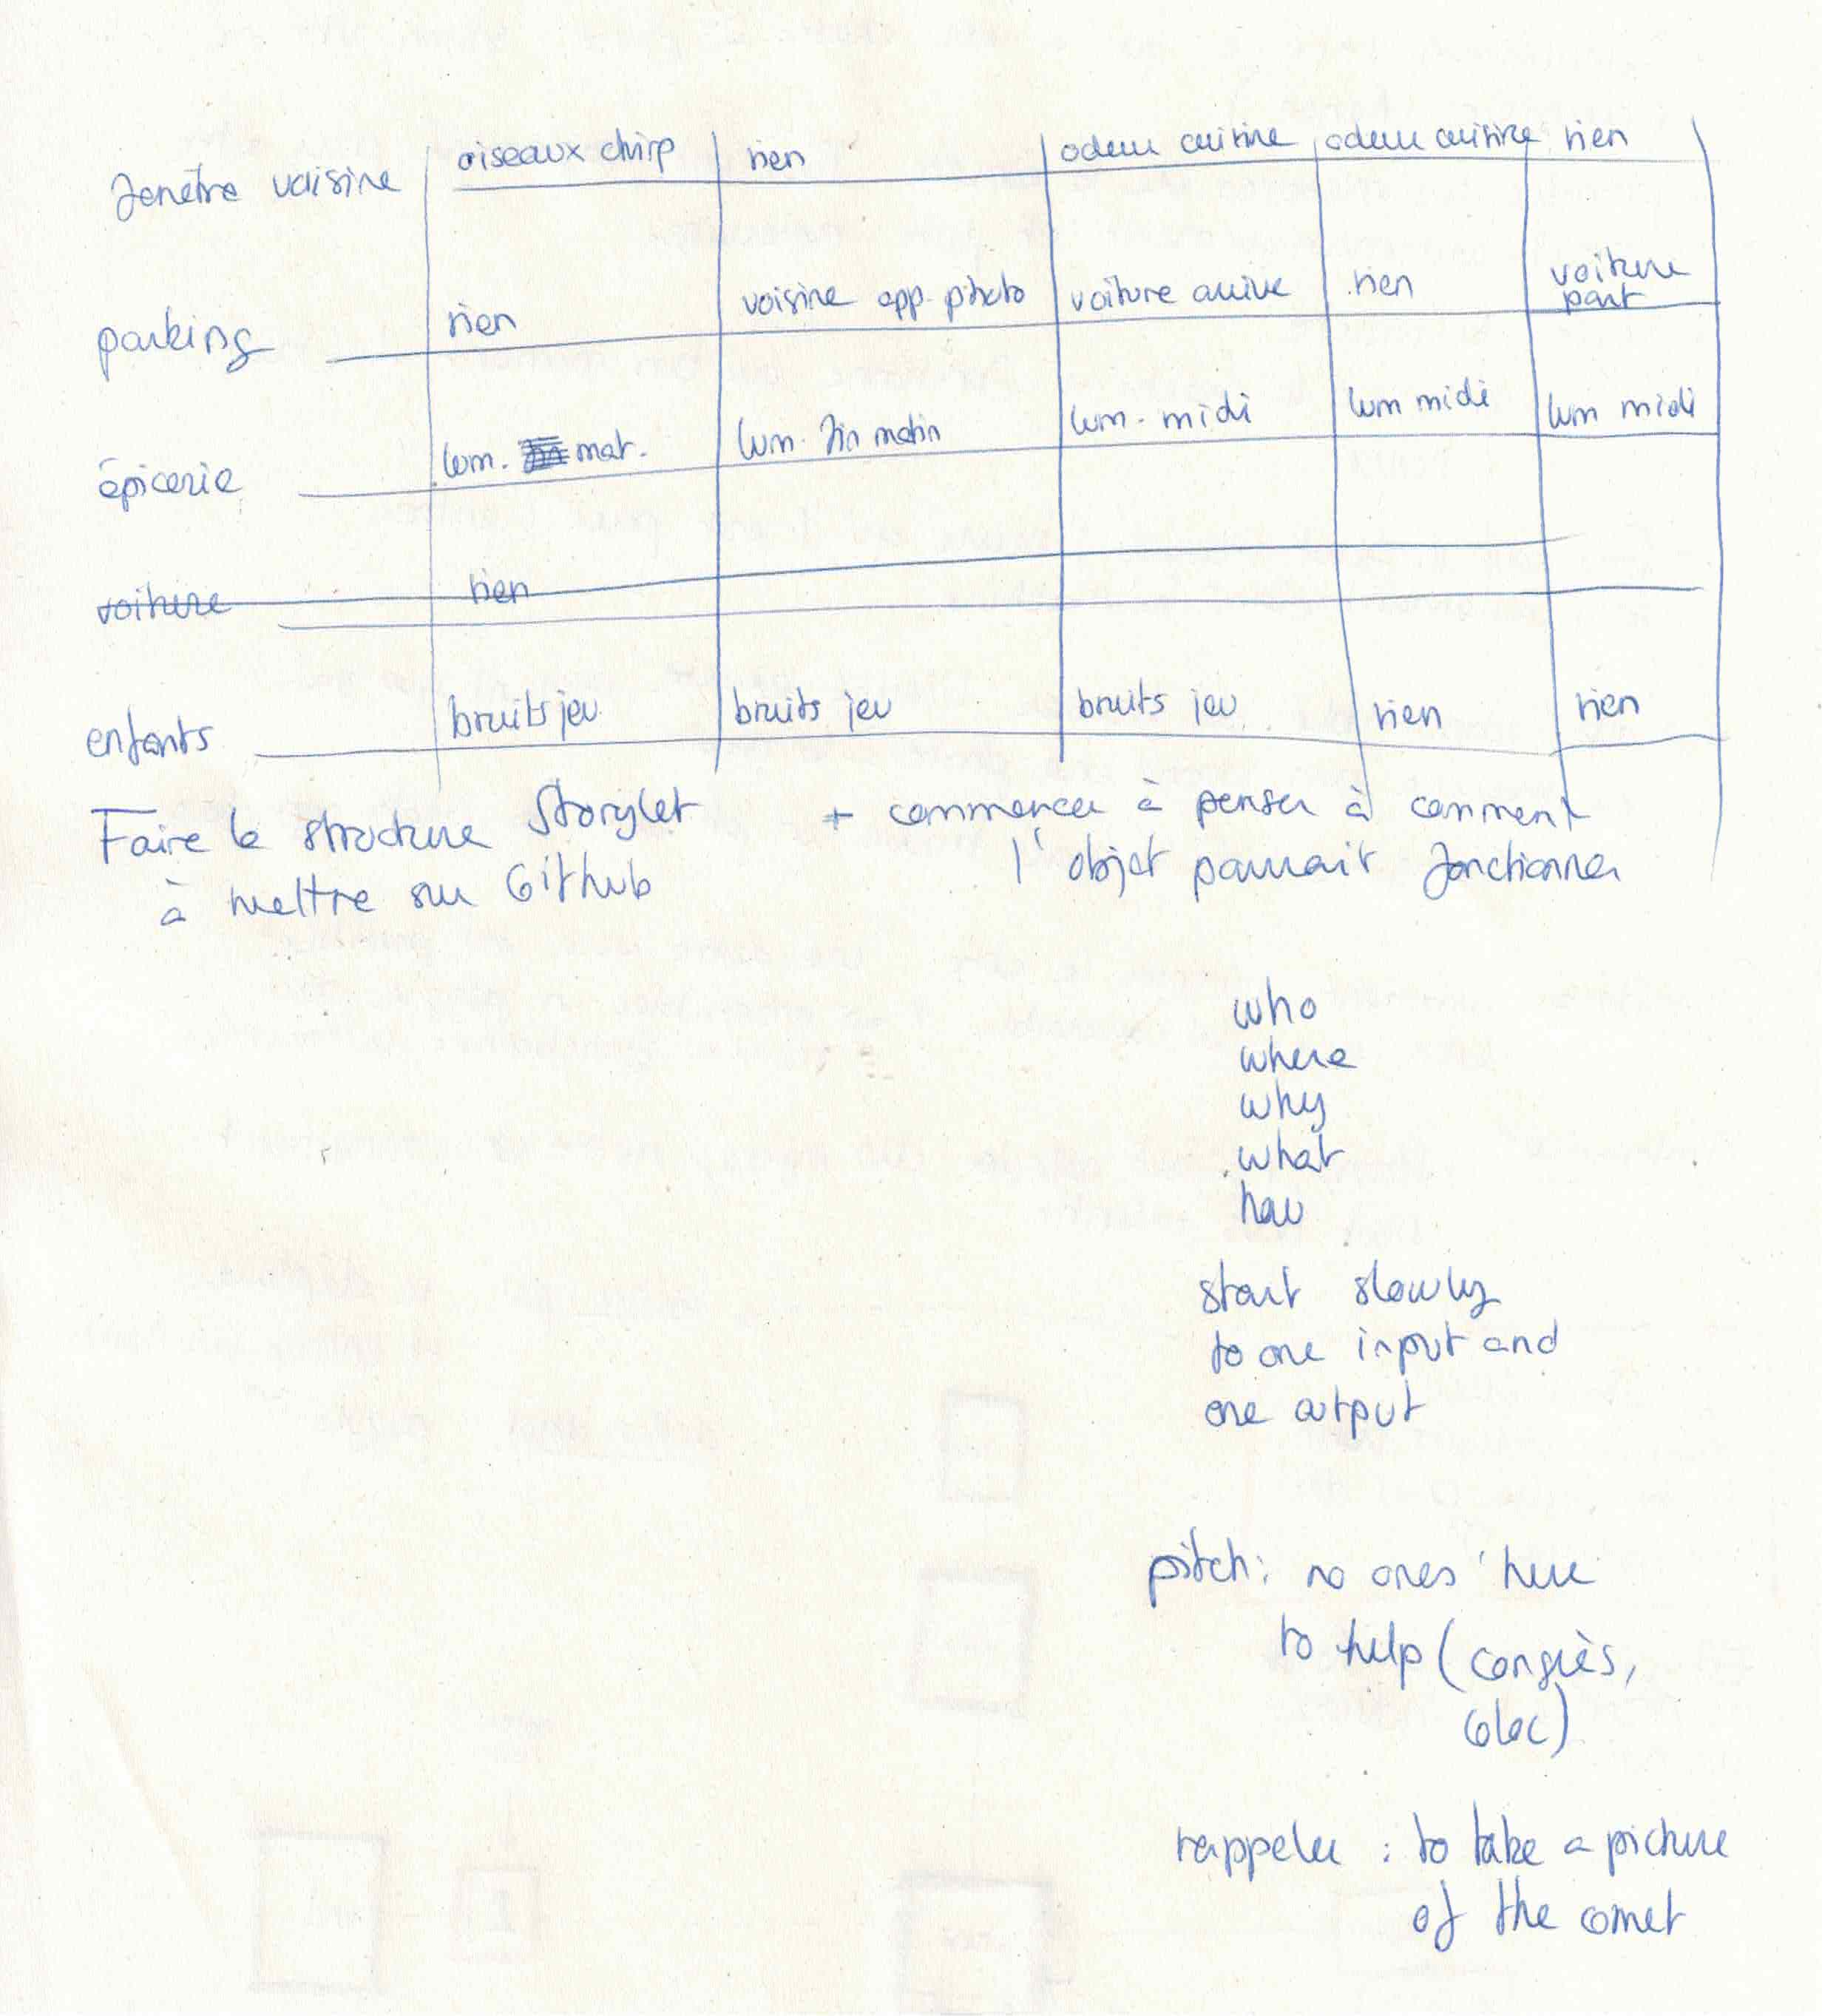 fenêtre voisine oiseaux chirp rien odeur cuisine odeur cuisine rien
parking rien voisine app. photo voiture arrive rien voiture part
épicerie lum. mat. lum. fin matin lum. midi lum midi lum midi
voiture rien
enfants bruits jeu bruits jeu bruits jeu rien rien
Faire la structure Storylet
à mettre sur Github
+ commencer à penser à comment
l'objet pourrait fonctionner
who
where
why
what
how
start slowly
to one input and
one output
pitch: no ones here
to help (congrès,
coloc)
rappeler : to take a picture
of the comet